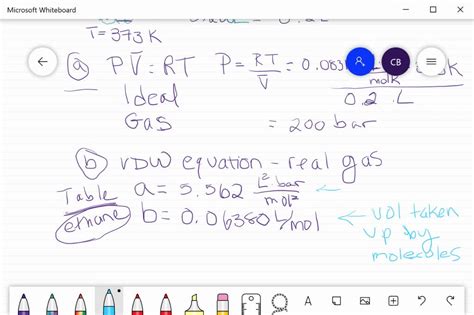 Microsoft Whiteboard
T = 373 K
(a) PV̄ = RT P = RT/V̄ = 0.083
molK
Ideal 0.2 L
Gas = 200 bar
(b) VDW equation - real gas
Table a = 5.562 L² bar/mol² ←
ethane b = 0.06380 L/mol ← vol taken
up by
molecules
CB
A